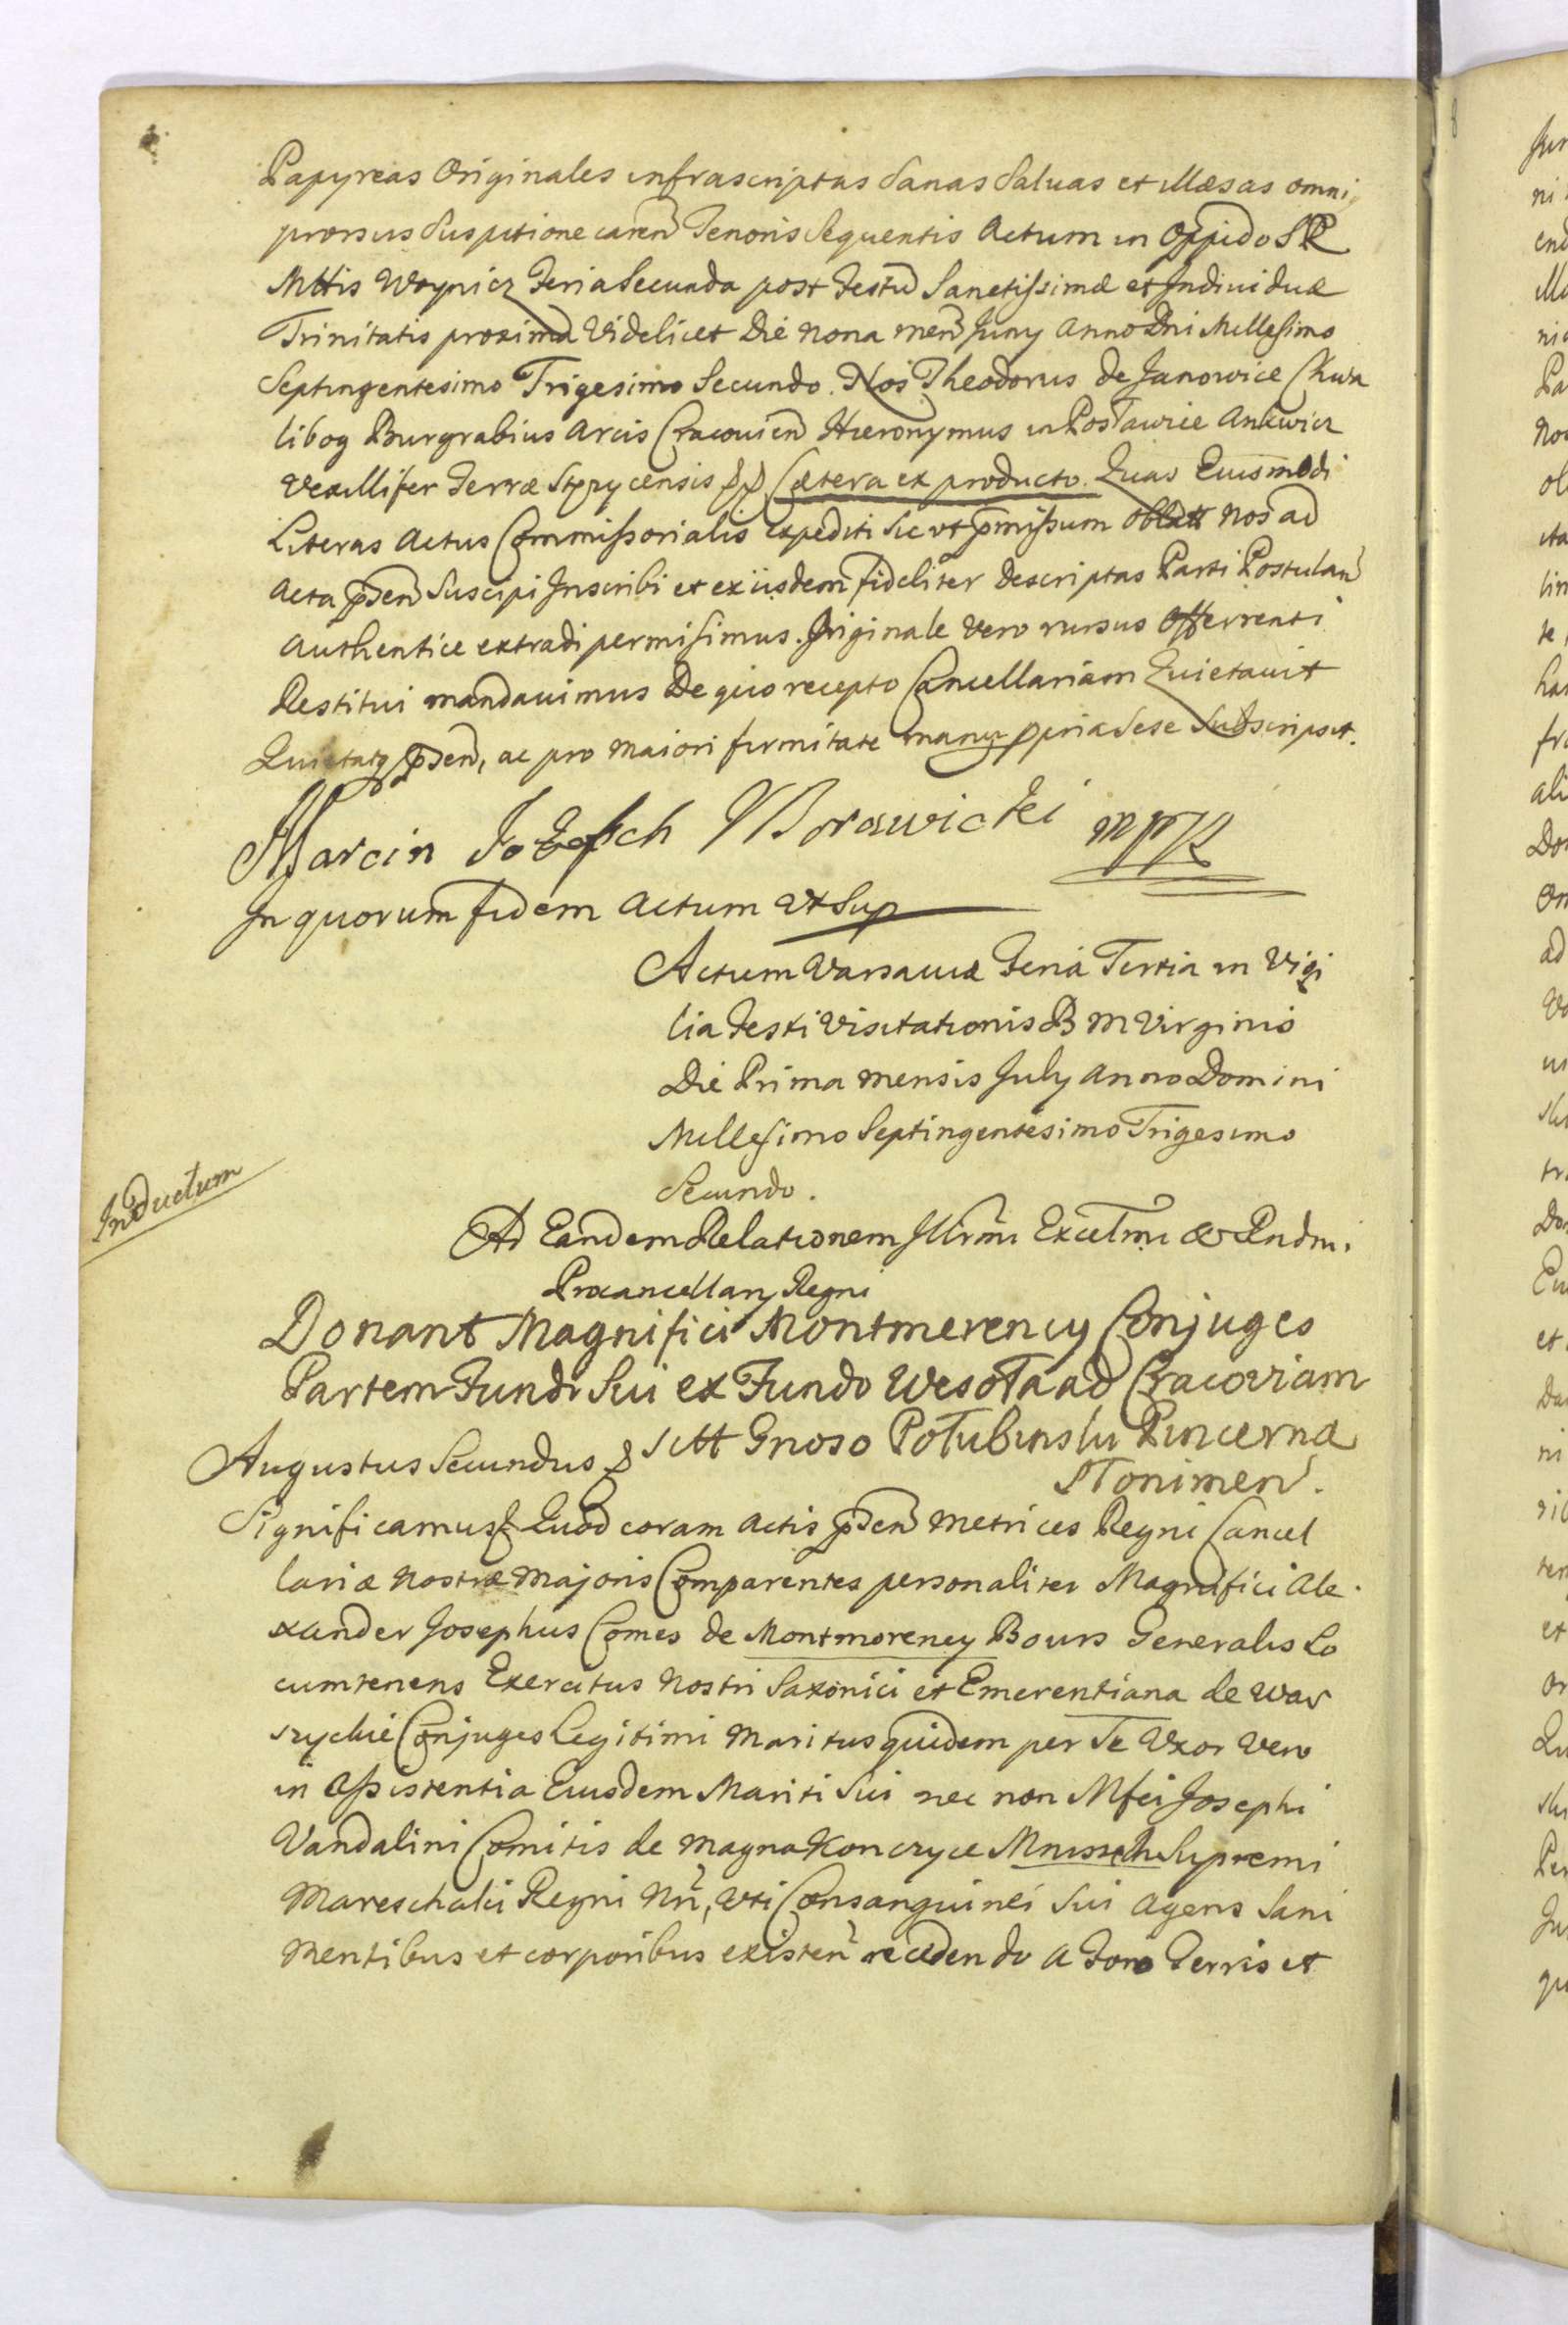 Papyreas Originales infrascriptas Sanas Saluas et illæsas omni
prorsus Suspitione caren̄ Tenoris Sequentis Actum in Oppido S R
Mttis Woynicz Feria Secunda post Festū Sanctissimæ et Indiuiduæ
Trinitatis proxima Videlicet Die Nona men̄ Juny Anno Dn̄i Millesimo
Septingentesimo Trigesimo Secundo. Nos Theodorus de Janowice Chwa
libog Burgrabius Arcis Cracouien̄ Hieronymus in Posławice Ankwicz
Vexillifer Terræ Stęzycensis pp Cætera ex producto. Quas Eiusmodi
Literas Actus Commissorialis expediti Sic ut p̄missum oblatt Nos ad
Acta p̄sen̄ Suscipi Inscribi et ex iisdem fideliter Descriptas Parti Postulan̄
Authentice extradi permisimus. Originale Vero rursus Offerrenti
Restitui mandauimus De quo recepto Cancellariam Quietauit
Quietatq p̄sen̄, ac pro Maiori firmitate manu ppria Sese Subscripsit.
Marcin Jozefch Morawicki mpp
In quorum fidem Actum Ut Sup
Actum Varsauiæ Feria Tertia in Vigi
lia Festi Visitationis B M Virginis
Die Prima Mensis July Anno Domini
Millesimo Septingentesimo Trigesimo
Secundo.
Inductum
Ad Eandem Relationem Illrm̄i Excelm̄i & Rndm̄i
Procancellary Regni
Donant Magnifici Montmerency Conjuges
Partem Fundi Sui ex Fundo Wesoła ad Cracoviam
sitt Gnoso Połubinski Pincernæ
Słonimen̄.
Augustus Secundus &
Significamus & Quod coram Actis p̄sen̄ Metrices Regni Cancel
lariæ Nostræ Majoris Comparentes personaliter Magnifici Ale
xander Josephus Comes de Montmorency Bours Generalis Lo
cumtenens Exercitus Nostri Saxonici et Emerentiana de War
szyckie Conjuges Legitimi Maritus quidem per Se Uxor Vero
in Assistentia Eiusdem Mariti Sui nec non Mfci Josephi
Vandalini Comitis de Magna Konczyce Mniszech Supremi
Mareschalci Regni Nn̄, Uti Consanguinei Sui Agens Sani
Mentibus et corporibus existen̄ recedendo a Foro Terris et